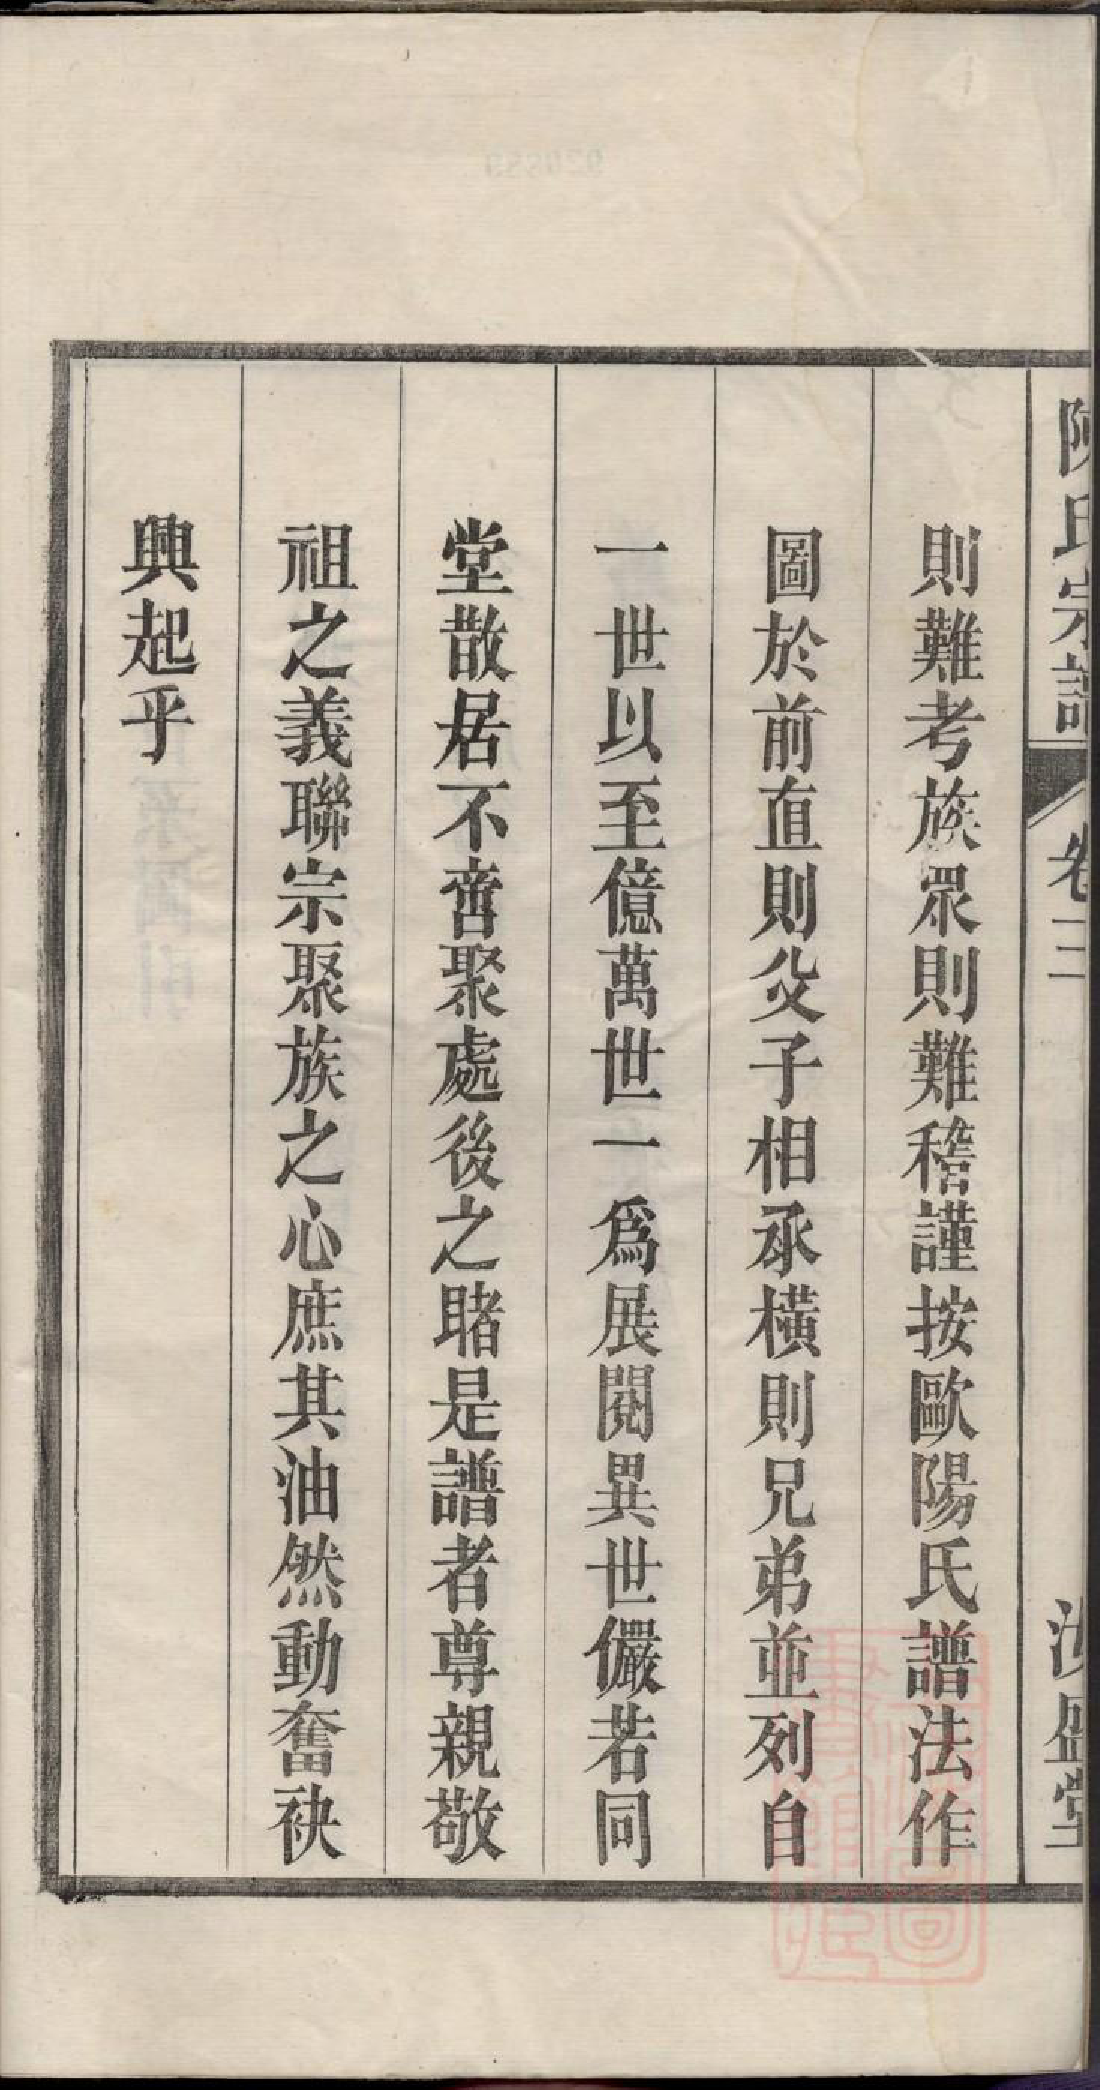 陳氏宗譜 卷三
則難考族眾則難稽謹按歐陽氏譜法作
圖於前直則父子相承橫則兄弟並列自
一世以至億萬世一為展閱異世儼若同
堂散居不啻聚處後之睹是譜者尊親敬
祖之義聯宗聚族之心庶其油然動奮袂
興起乎